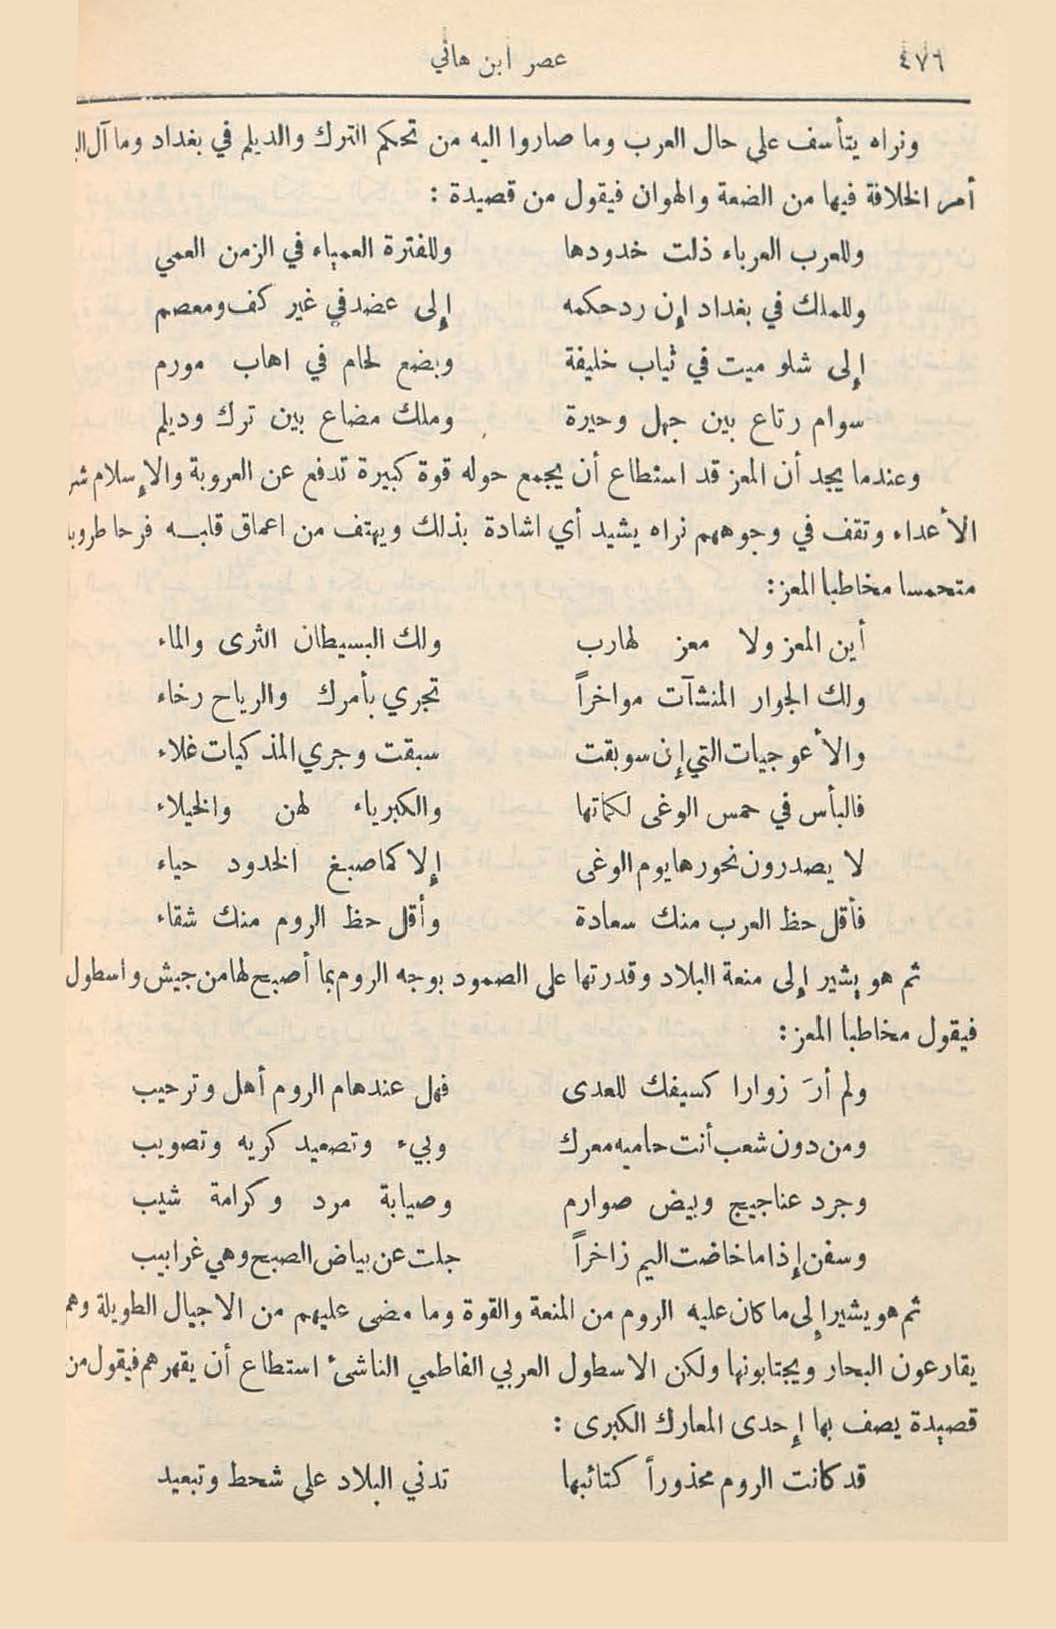 ٤٧٦
عصر ابن هاني
ونراه يتأسف على حال العرب وما صاروا اليه من تحكم الترك والديلم في بغداد وما آل
أمر الخلافة فيها من الضعة والهوان فيقول من قصيدة :
وللعرب العرباء ذلت خدودها وللفترة العمياء في الزمن العمي
وللملك في بغداد إن رد حكمه إلى عضد في غير كف ومعصم
إلى شلو ميت في ثياب خليفة وبضع لحام في اهاب مورم
سوام رتاع بين جهل وحيرة وملك مضاع بين ترك وديلم
وعندما يجد أن المعز قد استطاع أن يجمع حوله قوة كبيرة تدفع عن العروبة والإسلام
الأعداء وتقف في وجوههم نراه يشيد أي اشادة بذلك ويهتف من اعماق قلبه فرحا
متحمسا مخاطبا المعز:
أين المعز ولا معز لهارب ولك البسيطان الثرى والماء
ولك الجوار المنشآت مواخراً تجري بأمرك والرياح رخاء
والأعوجيات التي إن سوبقت سبقت وجري المذكيات غلاء
فالبأس في حمس الوغى لكماتها والكبرياء لهن والخيلاء
لا يصدرون نحورها يوم الوغى إلا كما صبغ الخدود حياء
فأقل حظ العرب منك سعادة وأقل حظ الروم منك شقاء
ثم هو يشير إلى منعة البلاد وقدرتها على الصمود بوجه الروم بما أصبح لها من جيش واسطول
فيقول مخاطبا المعز :
ولم أرَ زوارا كسيفك للعدى فهل عند هام الروم أهل وترحيب
ومن دون شعب أنت حاميه معرك وبيء وتصعيد كريه وتصويب
وجرد عناجيج وبيض صوارم وصيابة مرد وكرامة شيب
وسفن إذا ما خاضت اليم زاخراً جلت عن بياض الصبح وهي غرابيب
ثم هو يشير إلى ما كان عليه الروم من المنعة والقوة وما مضى عليهم من الاجيال الطويلة وهم
يقارعون البحار ويجتابونها ولكن الاسطول العربي الفاطمي الناشئ استطاع أن يقهرهم فيقول من
قصيدة يصف بها إحدى المعارك الكبرى :
قد كانت الروم محذوراً كتائبها تدني البلاد على شحط وتبعيد